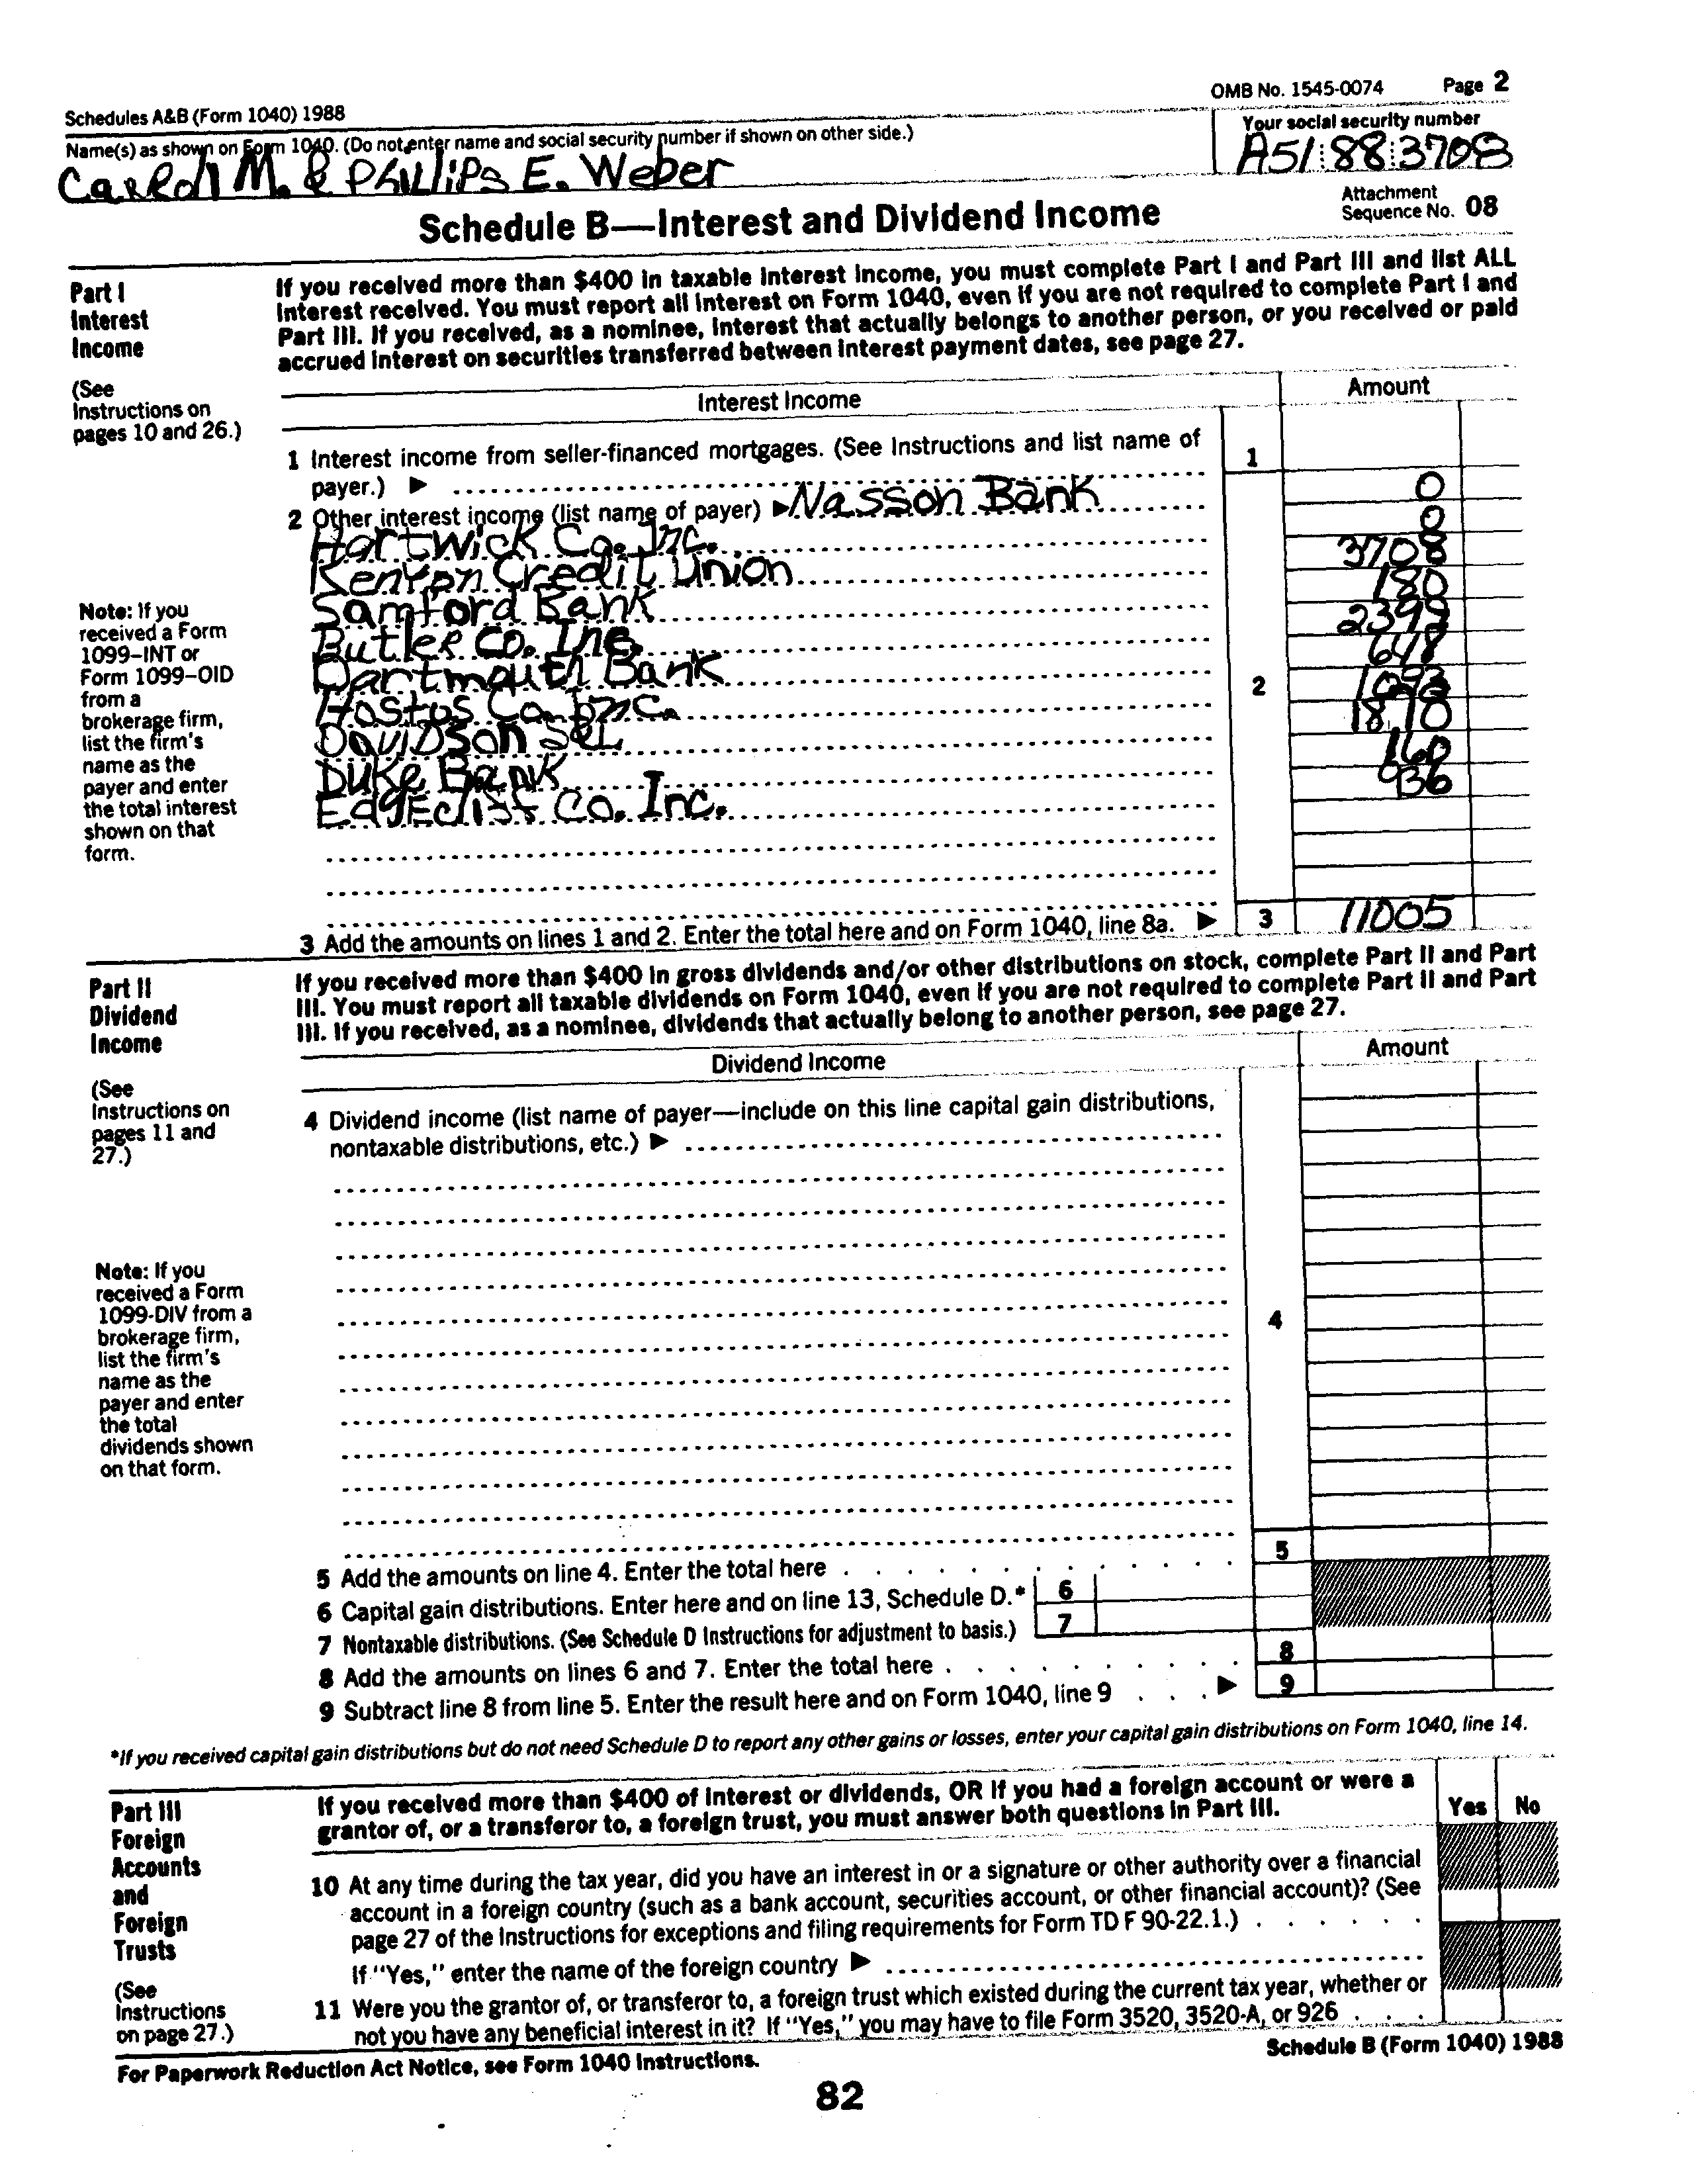 Schedules A&B (Form 1040) 1988
OMB No. 1545-0074 Page 2
Name(s) as shown on Form 1040. (Do not enter name and social security number if shown on other side.)
Your social security number
Carroll M. & Phillips E. Weber
A51 88 3708
Schedule B—Interest and Dividend Income
Attachment
Sequence No. 08
Part I
Interest
Income
(See
Instructions on
pages 10 and 26.)
If you received more than $400 in taxable interest income, you must complete Part I and Part III and list ALL
interest received. You must report all interest on Form 1040, even if you are not required to complete Part I and
Part III. If you received, as a nominee, interest that actually belongs to another person, or you received or paid
accrued interest on securities transferred between interest payment dates, see page 27.
Interest Income
Amount
1 Interest income from seller-financed mortgages. (See Instructions and list name of
payer.) ▶
1
2 Other interest income (list name of payer) ▶ Nasson Bank
0
Hartwick Co. Inc.
0
Kenyon Credit Union
3708
Samford Bank
180
Butler Co. Inc.
2399
Dartmouth Bank
648
Hostos Co. Inc.
2
Davidson S&L
1870
Duke Bank
160
Edgeclift Co. Inc.
936
Note: If you
received a Form
1099–INT or
Form 1099–OID
from a
brokerage firm,
list the firm's
name as the
payer and enter
the total interest
shown on that
form.
3 Add the amounts on lines 1 and 2. Enter the total here and on Form 1040, line 8a. ▶ 3 11005
Part II
Dividend
Income
(See
Instructions on
pages 11 and
27.)
If you received more than $400 in gross dividends and/or other distributions on stock, complete Part II and Part
III. You must report all taxable dividends on Form 1040, even if you are not required to complete Part II and Part
III. If you received, as a nominee, dividends that actually belong to another person, see page 27.
Dividend Income
Amount
4 Dividend income (list name of payer—include on this line capital gain distributions,
nontaxable distributions, etc.) ▶
4
Note: If you
received a Form
1099-DIV from a
brokerage firm,
list the firm's
name as the
payer and enter
the total
dividends shown
on that form.
5 Add the amounts on line 4. Enter the total here . . . . . . . . . . 5
6 Capital gain distributions. Enter here and on line 13, Schedule D.* 6
7 Nontaxable distributions. (See Schedule D Instructions for adjustment to basis.) 7
8 Add the amounts on lines 6 and 7. Enter the total here . . . . . . . 8
9 Subtract line 8 from line 5. Enter the result here and on Form 1040, line 9 . . . ▶ 9
*If you received capital gain distributions but do not need Schedule D to report any other gains or losses, enter your capital gain distributions on Form 1040, line 14.
Part III
Foreign
Accounts
and
Foreign
Trusts
(See
Instructions
on page 27.)
If you received more than $400 of interest or dividends, OR if you had a foreign account or were a
grantor of, or a transferor to, a foreign trust, you must answer both questions in Part III.
Yes No
10 At any time during the tax year, did you have an interest in or a signature or other authority over a financial
account in a foreign country (such as a bank account, securities account, or other financial account)? (See
page 27 of the Instructions for exceptions and filing requirements for Form TD F 90-22.1.) . . . . . .
If "Yes," enter the name of the foreign country ▶
11 Were you the grantor of, or transferor to, a foreign trust which existed during the current tax year, whether or
not you have any beneficial interest in it? If "Yes," you may have to file Form 3520, 3520-A, or 926 . . .
For Paperwork Reduction Act Notice, see Form 1040 Instructions.
Schedule B (Form 1040) 1988
82